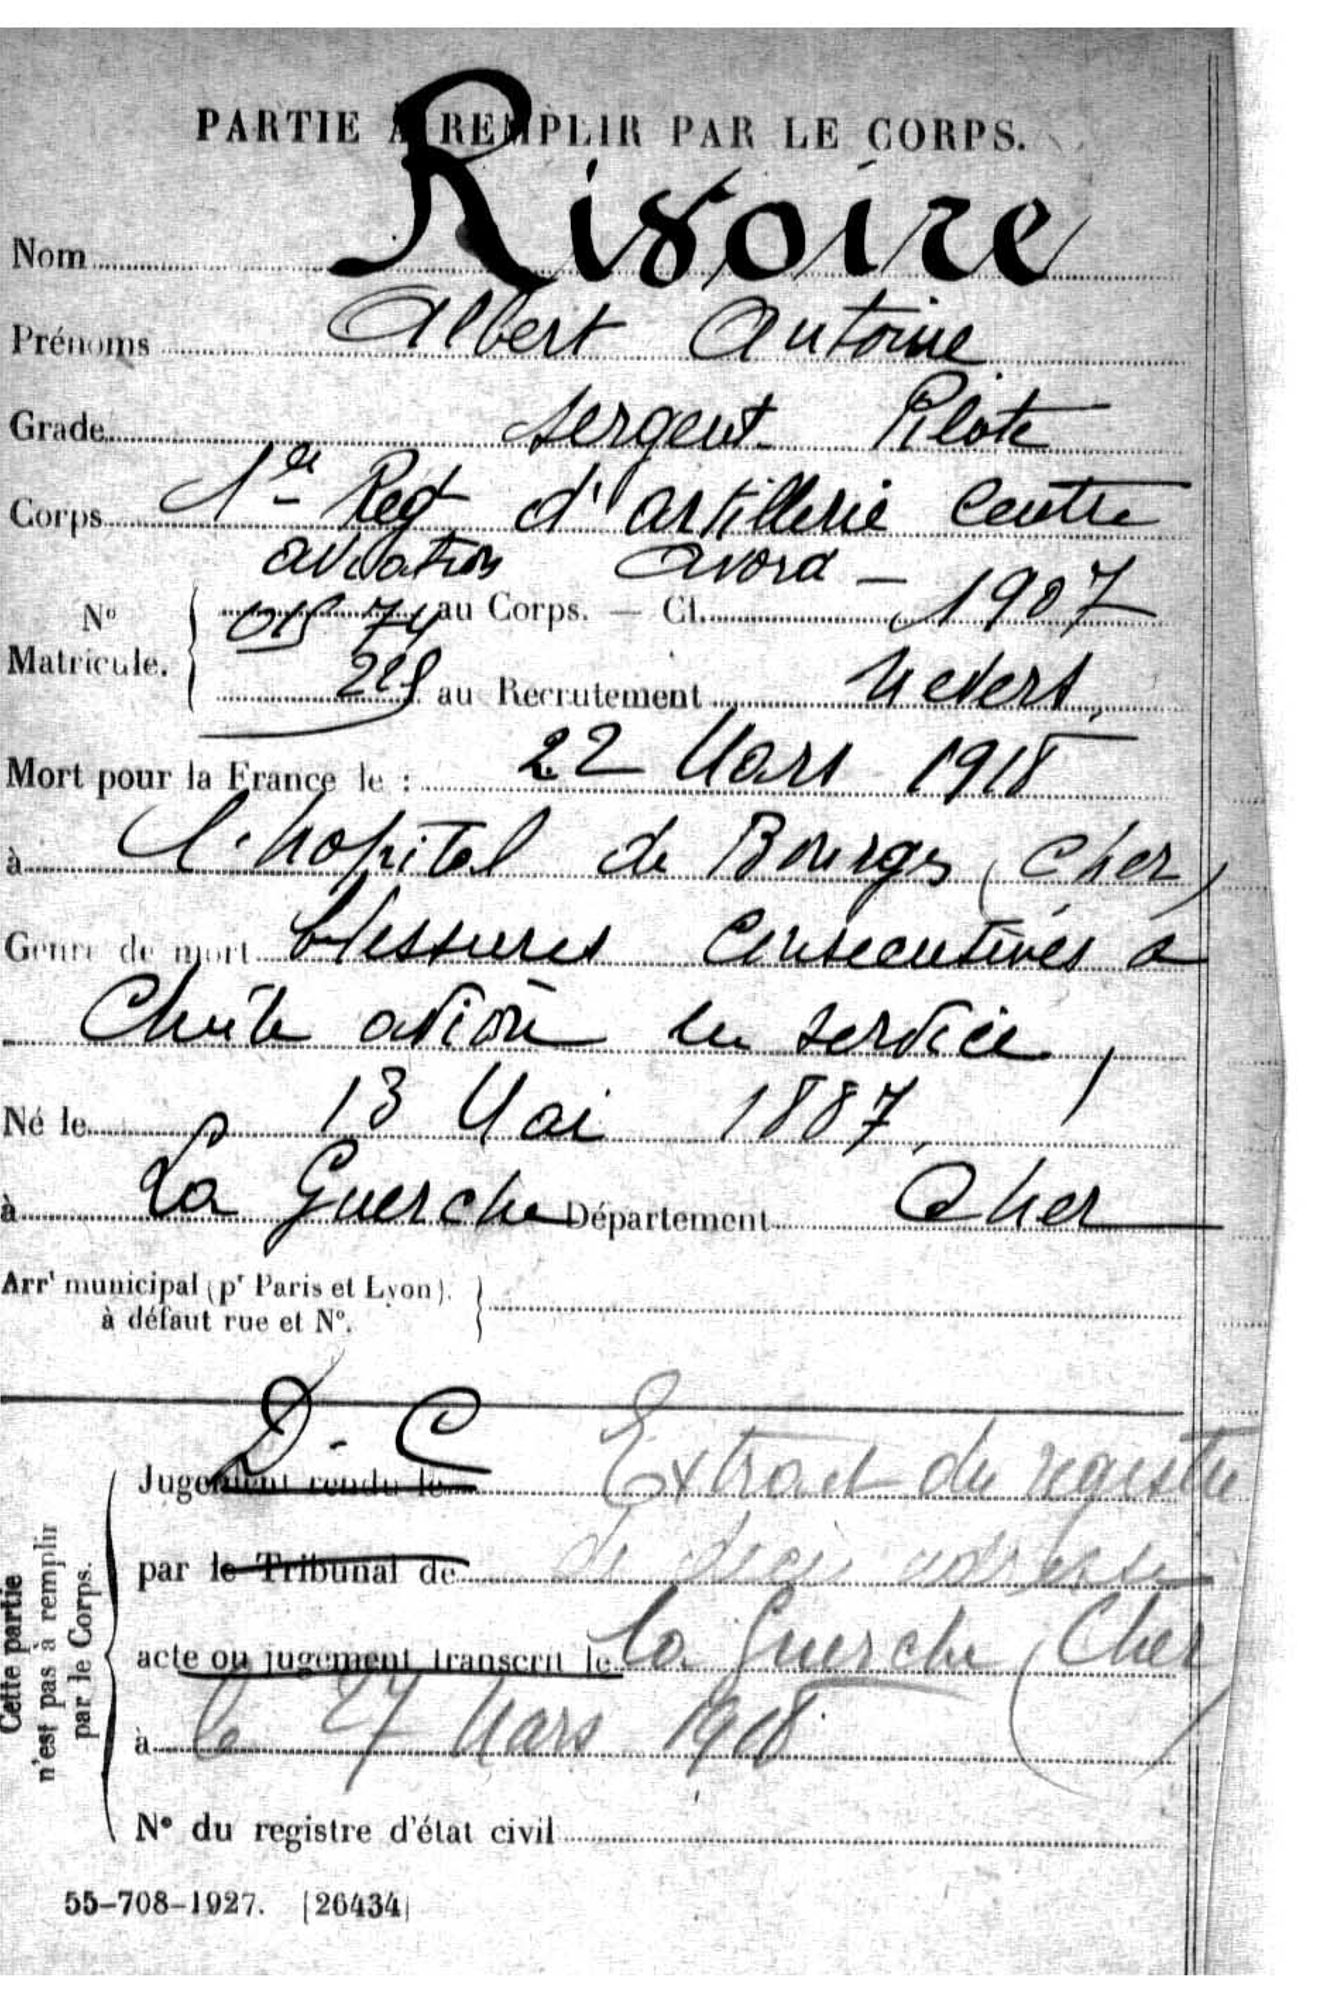 PARTIE À REMPLIR PAR LE CORPS.
Nom Rivoire
Prénoms Albert Antoine
Grade Sergent Pilote
Corps 1er Reg d'artillerie Centre
aviation Avord –
N° Matricule. au Corps. — Cl. 1907
au Recrutement Nevers
Mort pour la France le : 22 Mars 1918
à l'hopital de Bourges (Cher)
Genre de mort blessures consecutives a
Chute avion en service,
Né le 13 Mai 1887
à La Guerche Département Cher
Arrt municipal (pr Paris et Lyon).
à défaut rue et N°.
D. C
Cette partie
n'est pas à remplir
par le Corps.
Jugement rendu le Extrait du registre
par le Tribunal de de décès
acte ou jugement transcrit le la Guerche (Cher)
à le 27 Mars 1918
N° du registre d'état civil
55–708–1927. [26434]